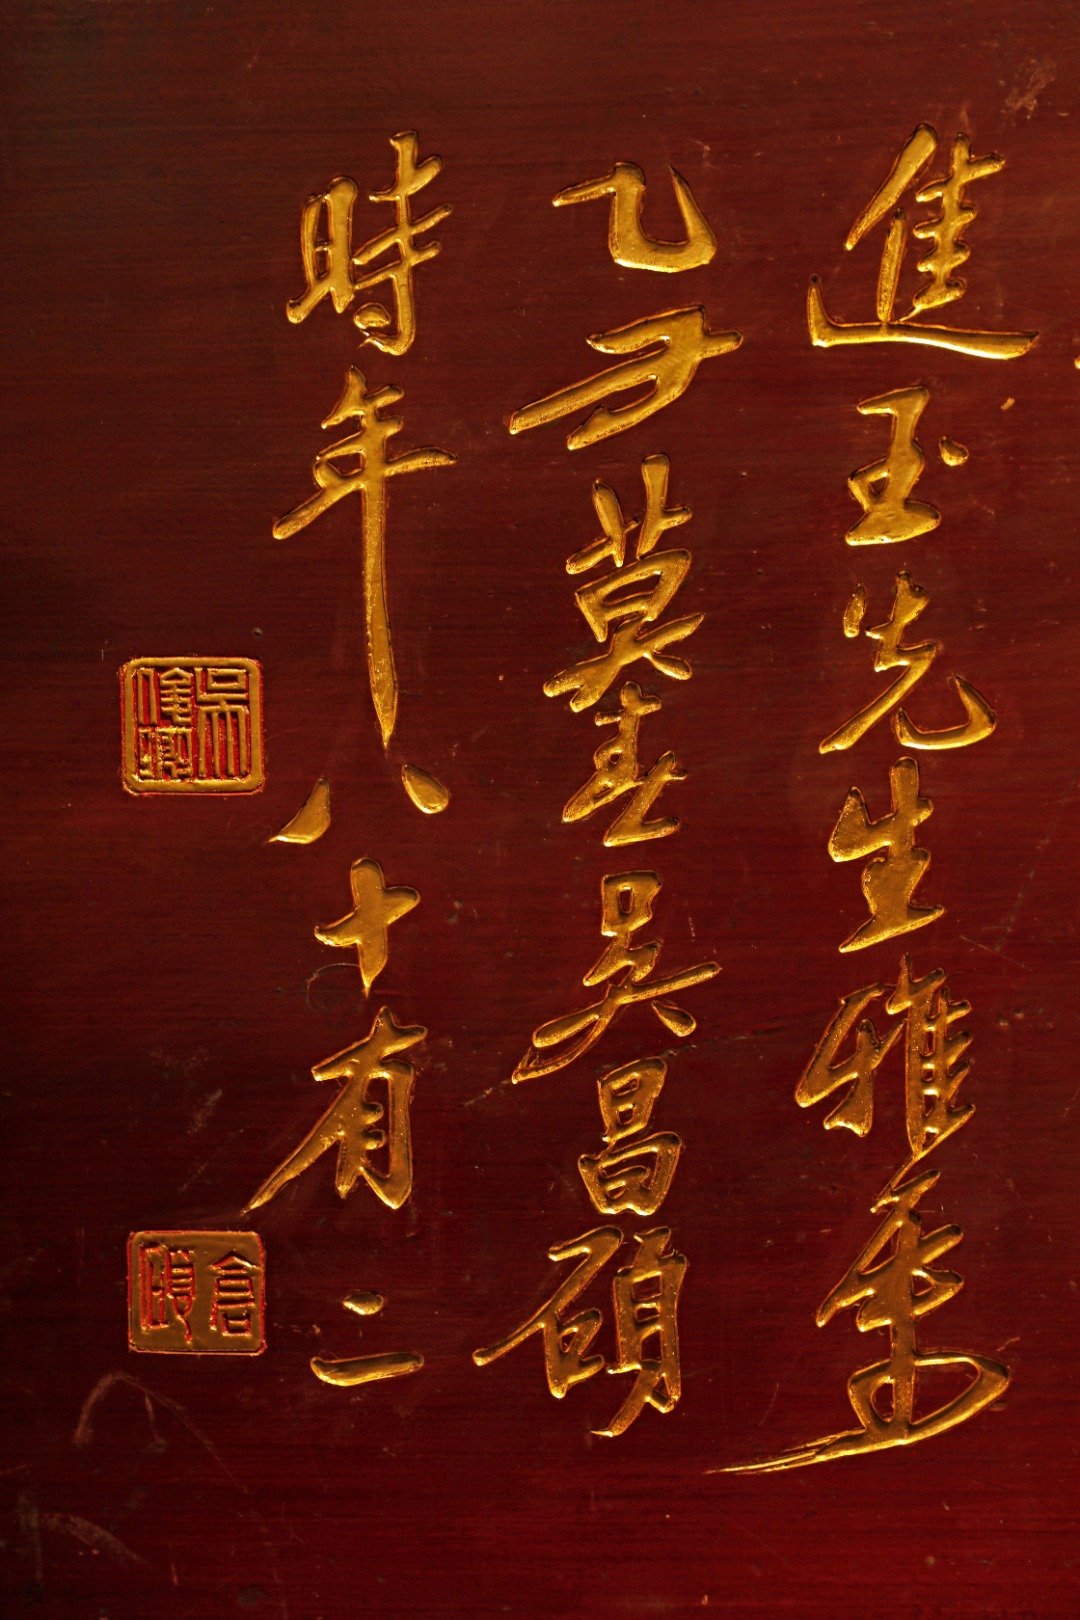 進玉先生雅屬
乙丑莫春吳昌碩
時年八十有二
吳俊卿
倉碩